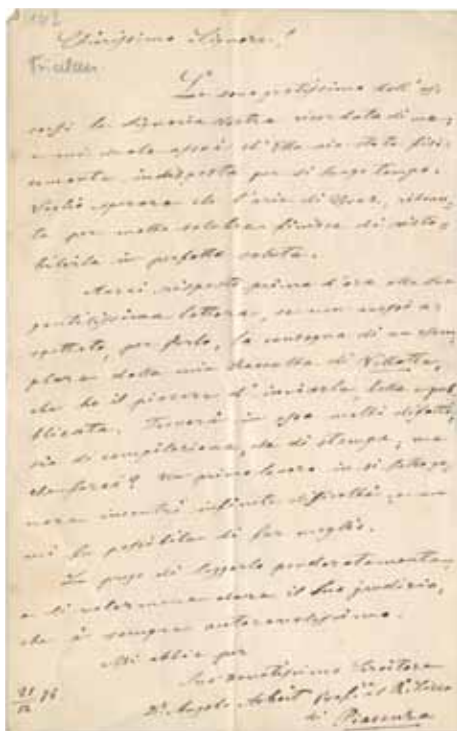 162
Friulan
Chiarissimo Signore!
Le sono gratissimo dell'es
sersi la Signoria Vostra ricordata di me,
e mi duole assai ch'Ella sia stata fisi
camente indisposta per sì lungo tempo.
Voglio sperare che l'aria di
per molto salubre finirà di rista-
bilirla in perfetta salute.
Avrei risposto prima d'ora alla Sua
gentilissima lettera, se non avessi a
spettato, per farlo, la consegna di un esem
plare della mia Raccolta di Villotte,
che ho il piacere d'inviarle, testè pub
blicata. Troverà in essa molti difetti,
sia di compilazione, sia di stampa, ma
che farci? Un primo lavoro in sì fatto ge
nere incontrò infinite difficoltà, e non
mi fu possibile di far meglio.
La prego di leggerlo ponderatamente,
e di volermene dare il Suo giudizio,
che è sempre autorevolissimo.
Mi abbia per
Suo devotissimo Servitore
Dr Angelo Arboit Prof. al R. Liceo
di Piacenza
21/12 76